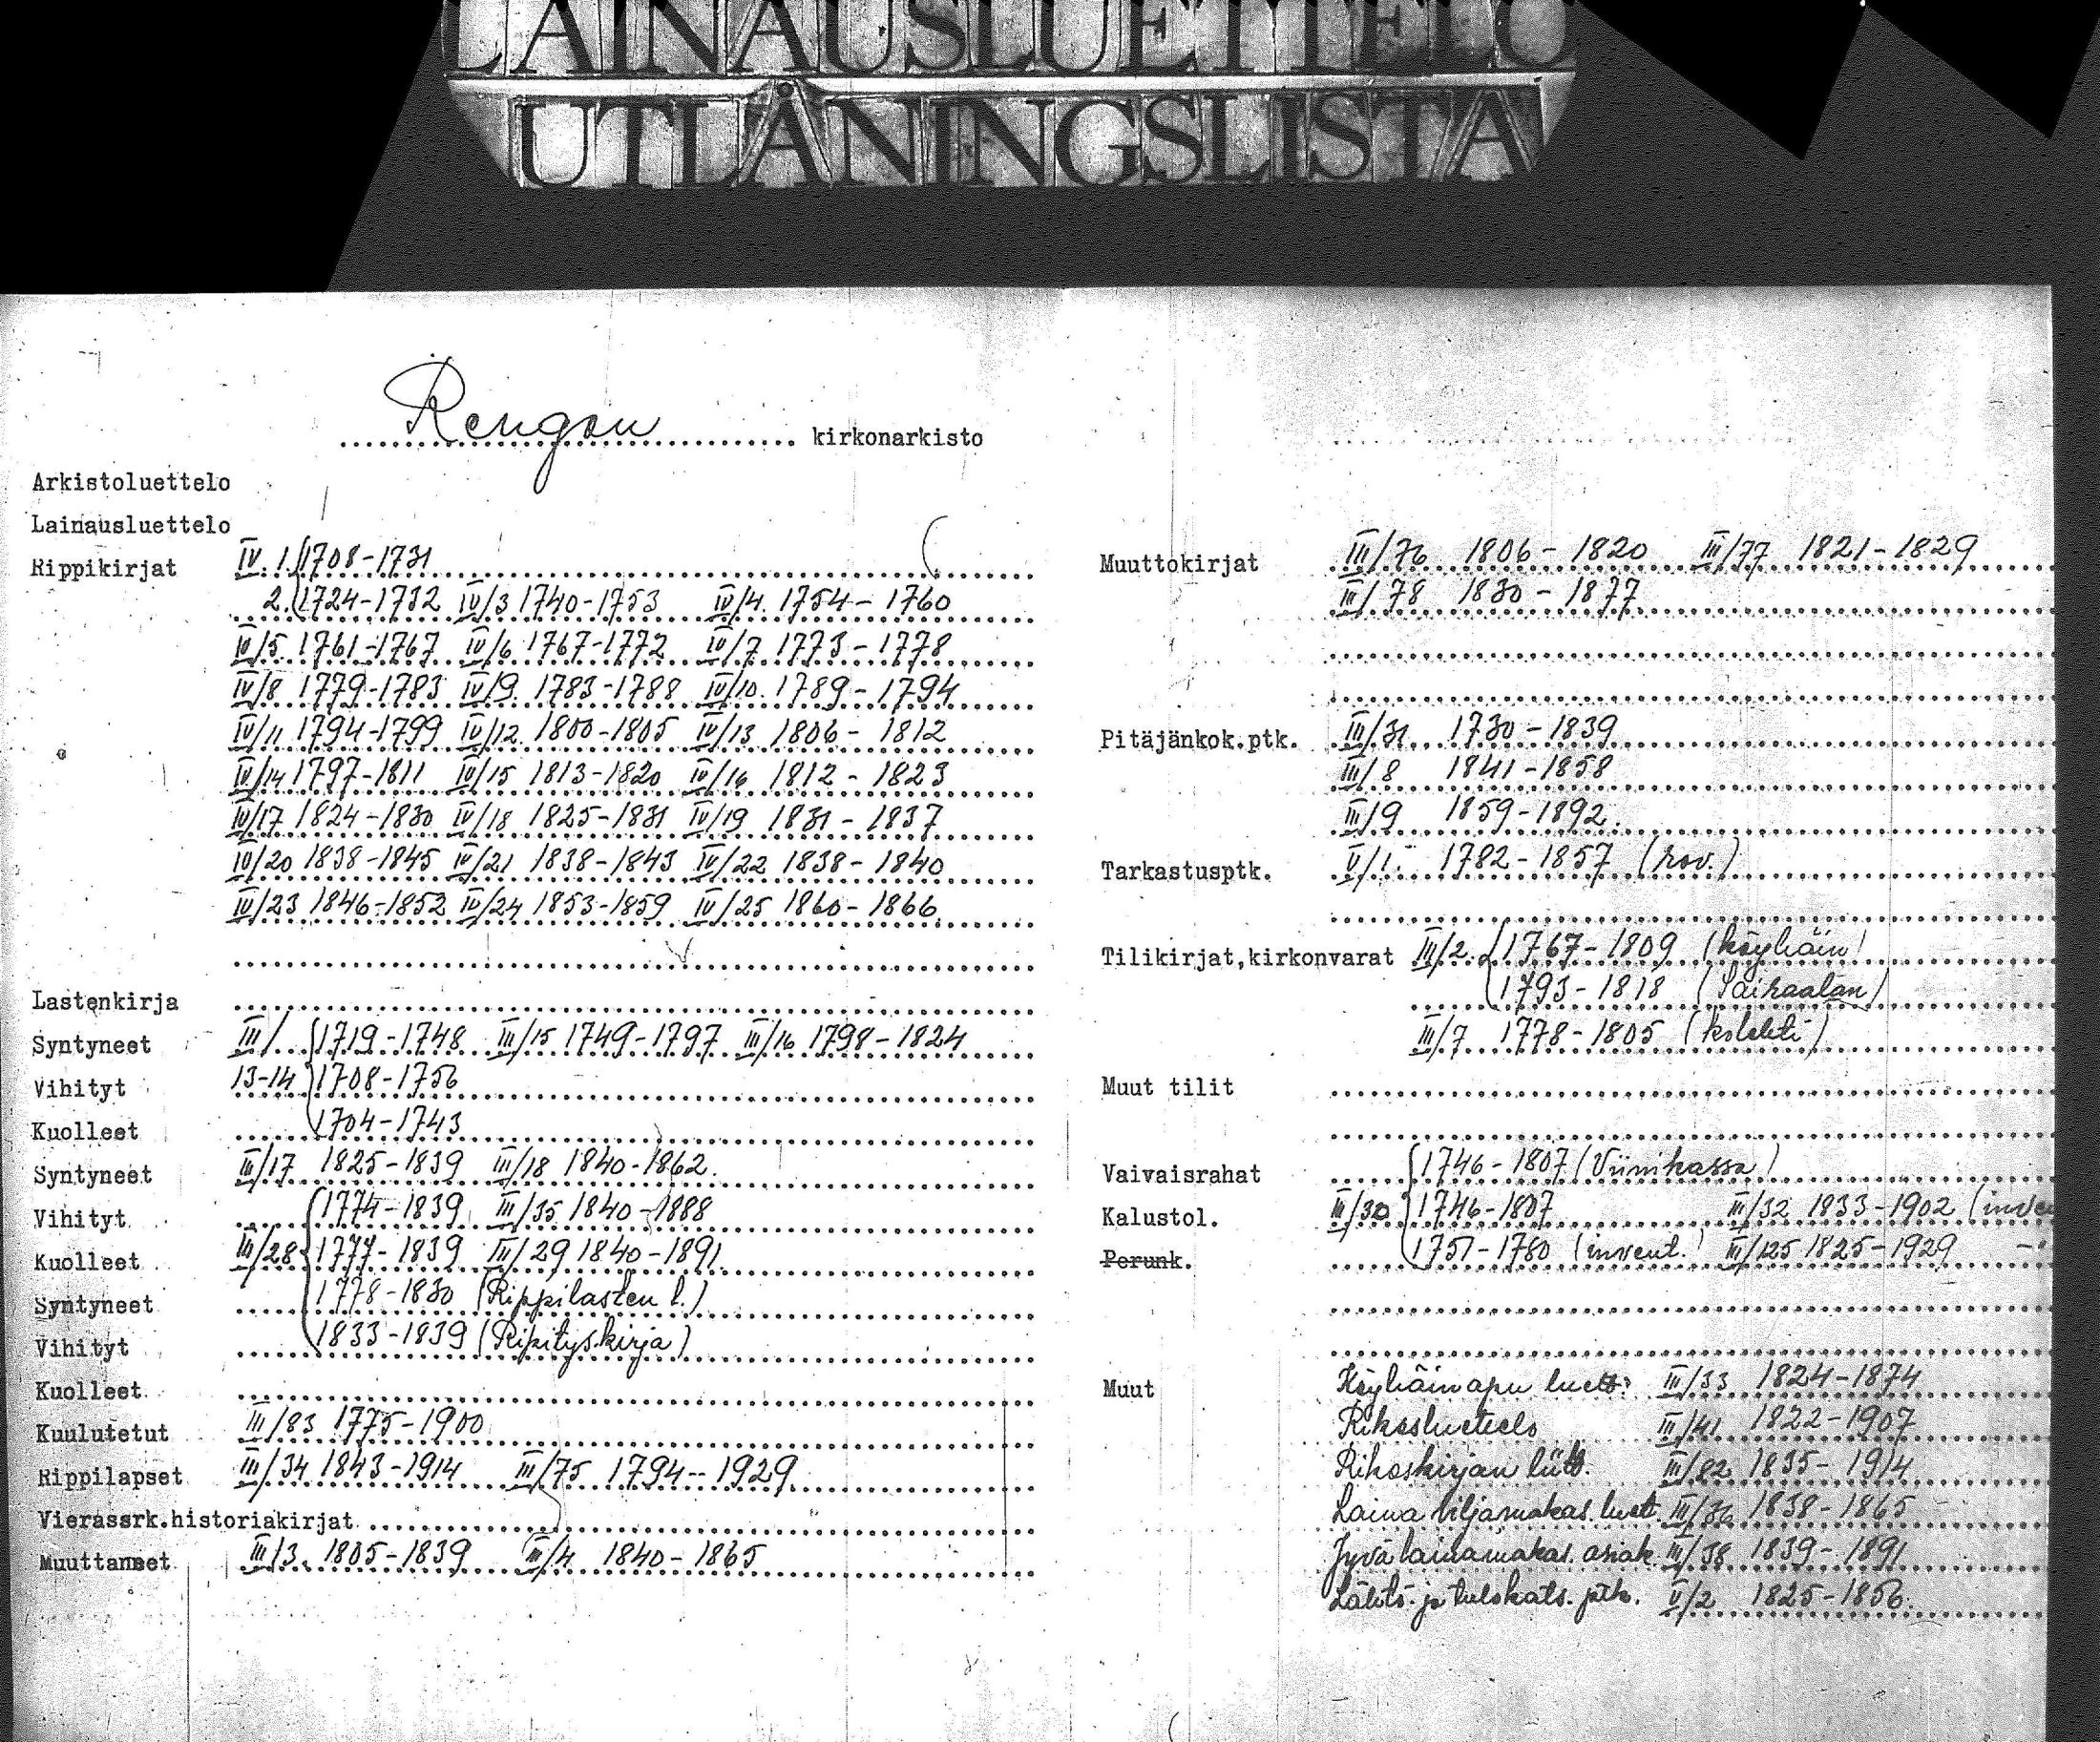 LAINAUSLUETTELO
UTLÅNINGSLISTA
Rengon kirkonarkisto
Arkistoluettelo
Lainausluettelo
Rippikirjat IV. 1. 1708-1731
2. 1724-1732 IV/3 1740-1753 IV/4. 1754-1760
IV/5. 1761-1767 IV/6 1767-1772 IV/7 1773-1778
IV/8 1779-1783 IV/9. 1783-1788 IV/10. 1789-1794
IV/11 1794-1799 IV/12. 1800-1805 IV/13 1806-1812
IV/14 1797-1811 IV/15 1813-1820 IV/16 1812-1823
IV/17 1824-1830 IV/18 1825-1831 IV/19 1831-1837
IV/20 1838-1845 IV/21 1838-1843 IV/22 1838-1840
IV/23 1846-1852 IV/24 1853-1859 IV/25 1860-1866
Lastenkirja
Syntyneet III/ 1719-1748 III/15 1749-1797 III/16 1798-1824
Vihityt 13-14 1708-1756
Kuolleet 1704-1743
Syntyneet III/17 1825-1839 III/18 1840-1862.
Vihityt 1774-1839 III/35 1840-1888
Kuolleet III/28 1777-1839 III/29 1840-1891
Syntyneet 1778-1830 (Rippilasten l.)
Vihityt 1833-1839 (Ripityskirja)
Kuolleet
Kuulutetut III/83 1775-1900
Rippilapset III/34 1843-1914 III/75 1794-1929
Vierassrk.historiakirjat
Muuttaneet III/3. 1805-1839 III/4 1840-1865
Muuttokirjat III/76 1806-1820 III/77 1821-1829
III/78 1830-1877
Pitäjänkok.ptk. III/31 1730-1839
III/8 1841-1858
III/9 1859-1892.
Tarkastusptk. V/1. 1782-1857 (rov.)
Tilikirjat,kirkonvarat III/2. 1767-1809 (köyhäin)
1793-1818 (Sairaalan)
III/7 1778-1805 (kolehti)
Muut tilit
Vaivaisrahat 1746-1807 (Viinikassa)
Kalustol. III/30 1746-1807 III/32 1833-1902 (inven
Perunk. 1751-1780 (invent.) III/125 1825-1929 -"
Muut Köyhäinapu luett. III/33 1824-1874
Rikosluettelo III/41 1822-1907
Rikoskirjan liitt. III/82 1835-1914
Laina viljamakas. luett. III/36 1838-1865
Jyvälainamakas. asiak. III/38 1839-1891
Lähtö- ja tulokats. ptk. V/2 1825-1856.